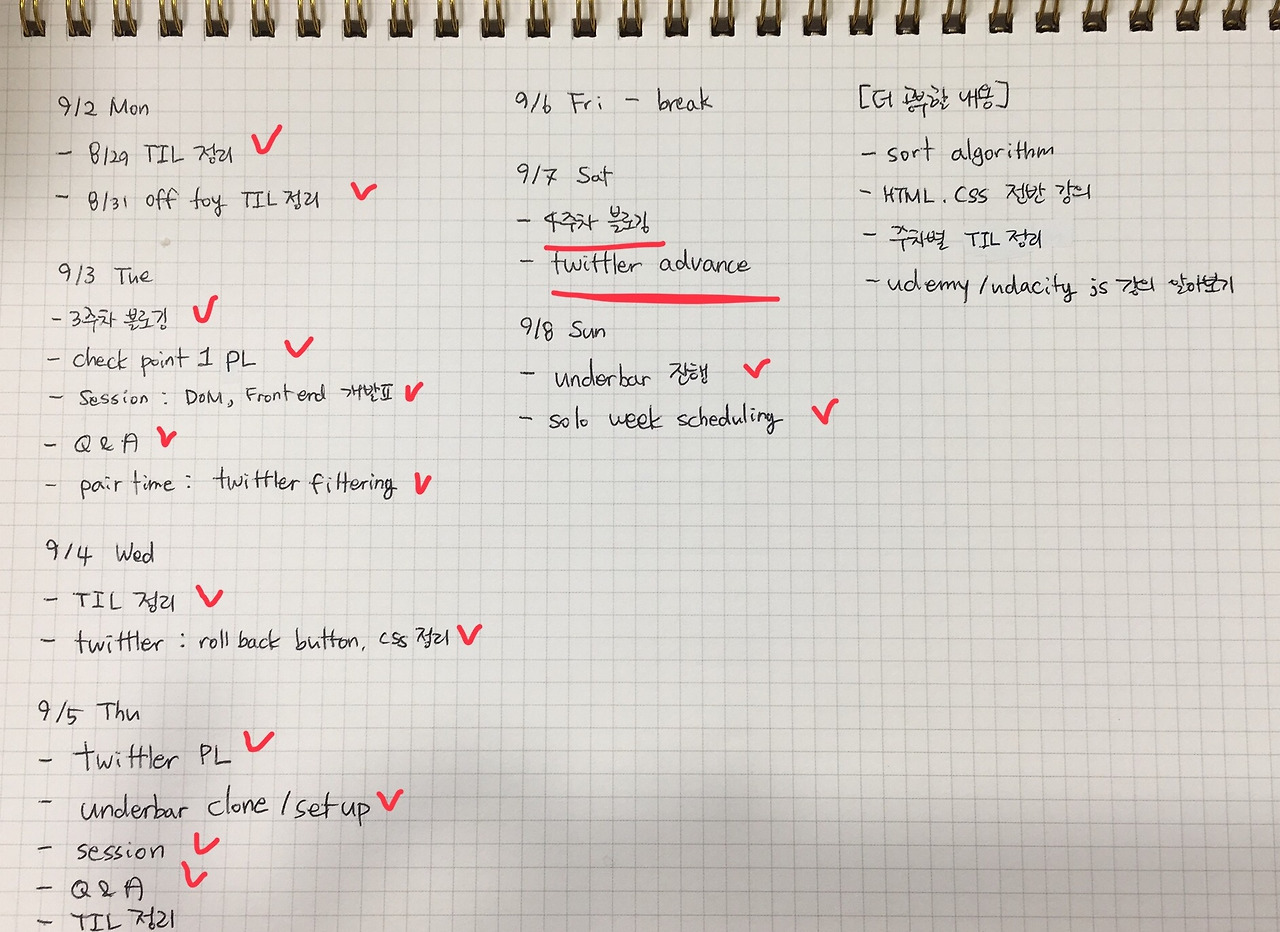 9/2 Mon
- 8/29 TIL 정리
- 8/31 off toy TIL 정리
9/3 Tue
- 3주차 블로깅
- check point 1 PL
- Session : DOM, Frontend 개발표
- Q & A
- pair time : twittler filtering
9/4 Wed
- TIL 정리
- twittler : roll back button, css 정리
9/5 Thu
- twittler PL
- underbar clone / set up
- session
- Q & A
- TIL 정리
9/6 Fri - break
9/7 Sat
- 4주차 블로깅
- twittler advance
9/8 Sun
- underbar 진행
- solo week scheduling
[더 공부할 내용]
- sort algorithm
- HTML. CSS 전반 강의
- 주차별 TIL 정리
- udemy / udacity js 강의 알아보기